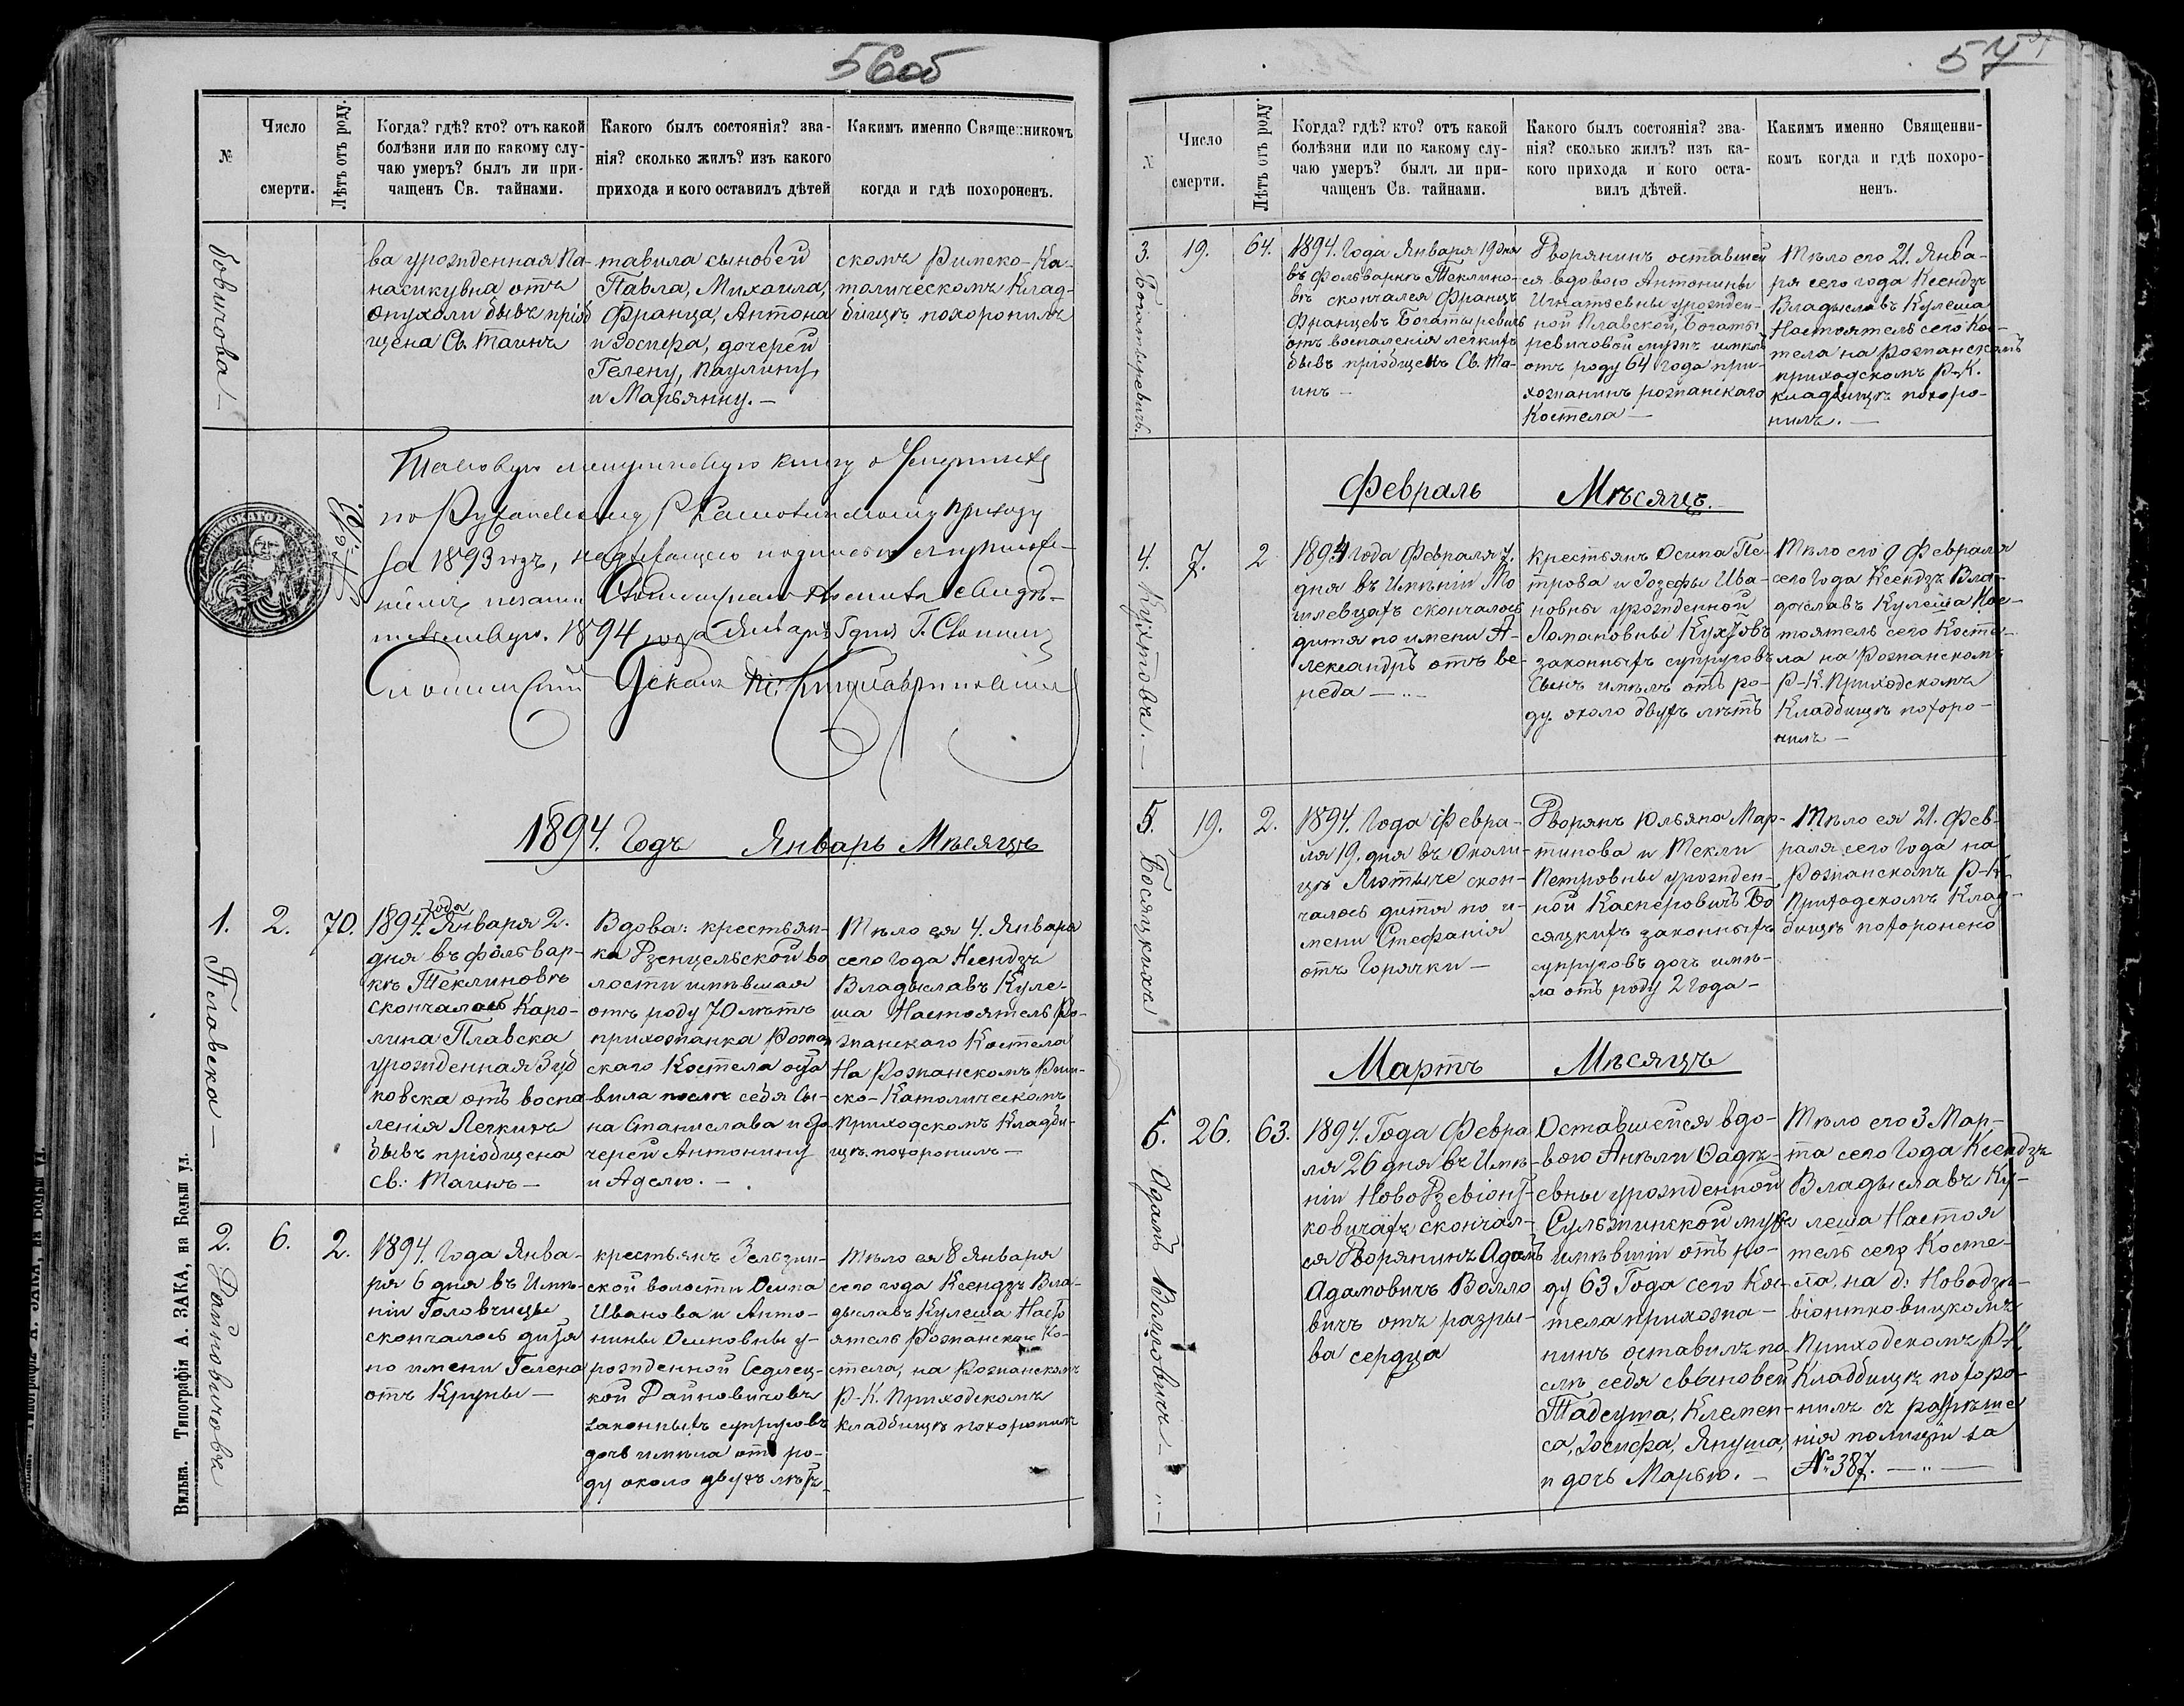 56об
№
Число
смерти.
Лѣтъ отъ роду.
Когда? гдѣ? кто? отъ какой
болѣзни или по какому слу-
чаю умеръ? былъ ли при-
чащенъ Св. тайнами.
Какого былъ состоянія? зва-
нія? сколько жилъ? изъ какого
прихода и кого оставилъ дѣтей
Какимъ именно Священникомъ
когда и гдѣ похороненъ.
бовичова –
ва урожденная Па-
насикувна отъ
опухоли бывъ пріоб
щена Св. Таинъ
тавила сыновей
Павла, Михаила,
Франца, Антона
и Іосифа, дочерей
Гелену, Паулину,
и Марьянну. –
скомъ Римско-Ка-
толическомъ Клад-
бищѣ похоронилъ
Таковую метрическую книгу о Умершихъ
по Р.Католическому приходу
за 1893 годъ, надлежащею подписью и приложе-
ніемъ печати
1894 года Января дня Г. Слонимъ
Слонимскій Деканъ
1894. Годъ Январь Мѣсяцъ
1.
Плавска –
2.
70.
1894. года Января 2.
дня въ фольвар-
кѣ Теклиновѣ
скончалась Каро-
лина Плавска
урожденная Зуб
ковска отъ воспа
ленія Легкихъ
бывъ пріобщена
Св. Таинъ –
Вдова: крестьян-
ка Рзенцельской во
лости имѣвшая
отъ роду 70 лѣтъ
прихожанка Рожан
скаго Костела оста
вила послѣ себя Сы-
на Станислава и до
черей Антонину
и Аделю. –
Тѣло ея 4. Января
сего года Ксендзъ
Владыславъ Куле-
ша Настоятель Ро-
жанскаго Костела
На Рожанскомъ Рим-
ско-Католическомъ
приходскомъ Кладби-
щѣ похоронилъ –
2.
Райновичовъ
6.
2.
1894. Года Янва-
ря 6 дня въ Имѣ-
ніи Головчицы
скончалось дитя
по имени Гелена
отъ Крупы –
крестьянъ Зельзин-
ской волости Осипа
Иванова и Анто-
нины Осиповны у-
рожденной Седлец-
кой Райновичовъ
законныхъ супруговъ
дочь имѣла отъ ро-
ду около двухъ лѣтъ
Тѣло ея 8 Января
сего года Ксендзъ Вла-
дыславъ Кулеша Насто
ятель Рожанскаго Ко-
стела, на Рожанскомъ
Р-К. Приходскомъ
кладбищѣ похоронилъ
Вильна. Типографія А. ЗАКА, на Больш ул.
57
Число
смерти.
Лѣтъ отъ роду.
Когда? гдѣ? кто? отъ какой
болѣзни или по какому слу-
чаю умеръ? былъ ли при-
чащенъ Св. тайнами.
Какого былъ состоянія? зва-
нія? сколько жилъ? изъ ка-
кого прихода и кого оста-
вилъ дѣтей.
Какимъ именно Священни-
комъ когда и гдѣ похоро-
ненъ.
3.
Богатыревичъ.
19.
64.
1894. Года Января 19 дня
въ фольваркѣ Теклино-
вѣ скончался Францъ
Францевъ Богатыревичъ
отъ воспаленія легкихъ
бывъ пріобщенъ Св. Та-
инъ –
Дворянинъ оставшей
ся вдовою Антонины
Игнатьевны урожден-
ной Плавской, Богаты
ревичовой мужъ имѣлъ
отъ роду 64 года при-
хожанинъ рожанскаго
Костела –
Тѣло его 21. Янва-
ря сего года Ксендзъ
Владыславъ Кулеша
Настоятель сего Кос-
тела на Рожанскомъ
приходскомъ Р-К.
кладбищѣ похоро-
нилъ. –
Февраль Мѣсяцъ.
4.
Кухтовъ. –
7.
2
1894 года Февраля 7.
дня въ Имѣніи Мо
гилевцахъ скончалось
дитя по имени А-
лександръ отъ ве-
реда –
крестьянъ Осипа Пе-
трова и Іозефы Ива-
новны урожденной
Ломановны Кухтовъ
законныхъ супруговъ
Сынъ имѣлъ отъ ро-
ду около двухъ лѣтъ
Тѣло его 9 Февраля
сего Года Ксендзъ Вла-
дыславъ Кулеша Нас-
тоятель сего Косте-
ла на Рожанскомъ
Р-К. Приходскомъ
Кладбищѣ похоро-
нилъ –
5.
Босяцкихъ
19.
2.
1894. Года Февра-
ля 19. дня въ Околи-
цѣ Лютыче скон-
чалось дитя по и-
мени Стефанія
отъ Горячки –
Дворянъ Юльяна Мар-
тинова и Текли
Петровны урожден-
ной Касперовичъ Бо
сяцкихъ законныхъ
супруговъ дочь имѣ-
ла отъ роду 2 года –
Тѣло ея 21. Фев-
раля сего Года на
Рожанскомъ Р-К.
Приходскомъ Клад-
бищѣ похоронено
Мартъ Мѣсяцъ
6.
Адамъ Волловичъ –
26.
63.
1894. Года Февра
ля 26 дня въ Имѣ-
ніи НовоДзевіонт-
ковичахъ скончал-
ся Дворянинъ Адамъ
Адамовичъ Волло
вичъ отъ разры-
ва сердца
Оставшейся вдо-
вою Анѣли Фадѣ-
евны урожденной
Сульжинской мужъ
имѣвшій отъ ро-
ду 63 Года сего Кос-
тела прихожа-
нинъ оставилъ по
слѣ себя сыновей
Тадеуша, Клемен-
са, Іосифа, Януша,
и дочь Марью. –
Тѣло его 3 Мар-
та сего Года Ксендзъ
Владыславъ Ку-
леша Настоя
тель сего Косте-
ла, на д: Новодзе-
віонтковицкомъ
Приходскомъ Р-К
Кладбищѣ похоро-
нилъ съ разрѣше
нія полиціи за
№ 387. –